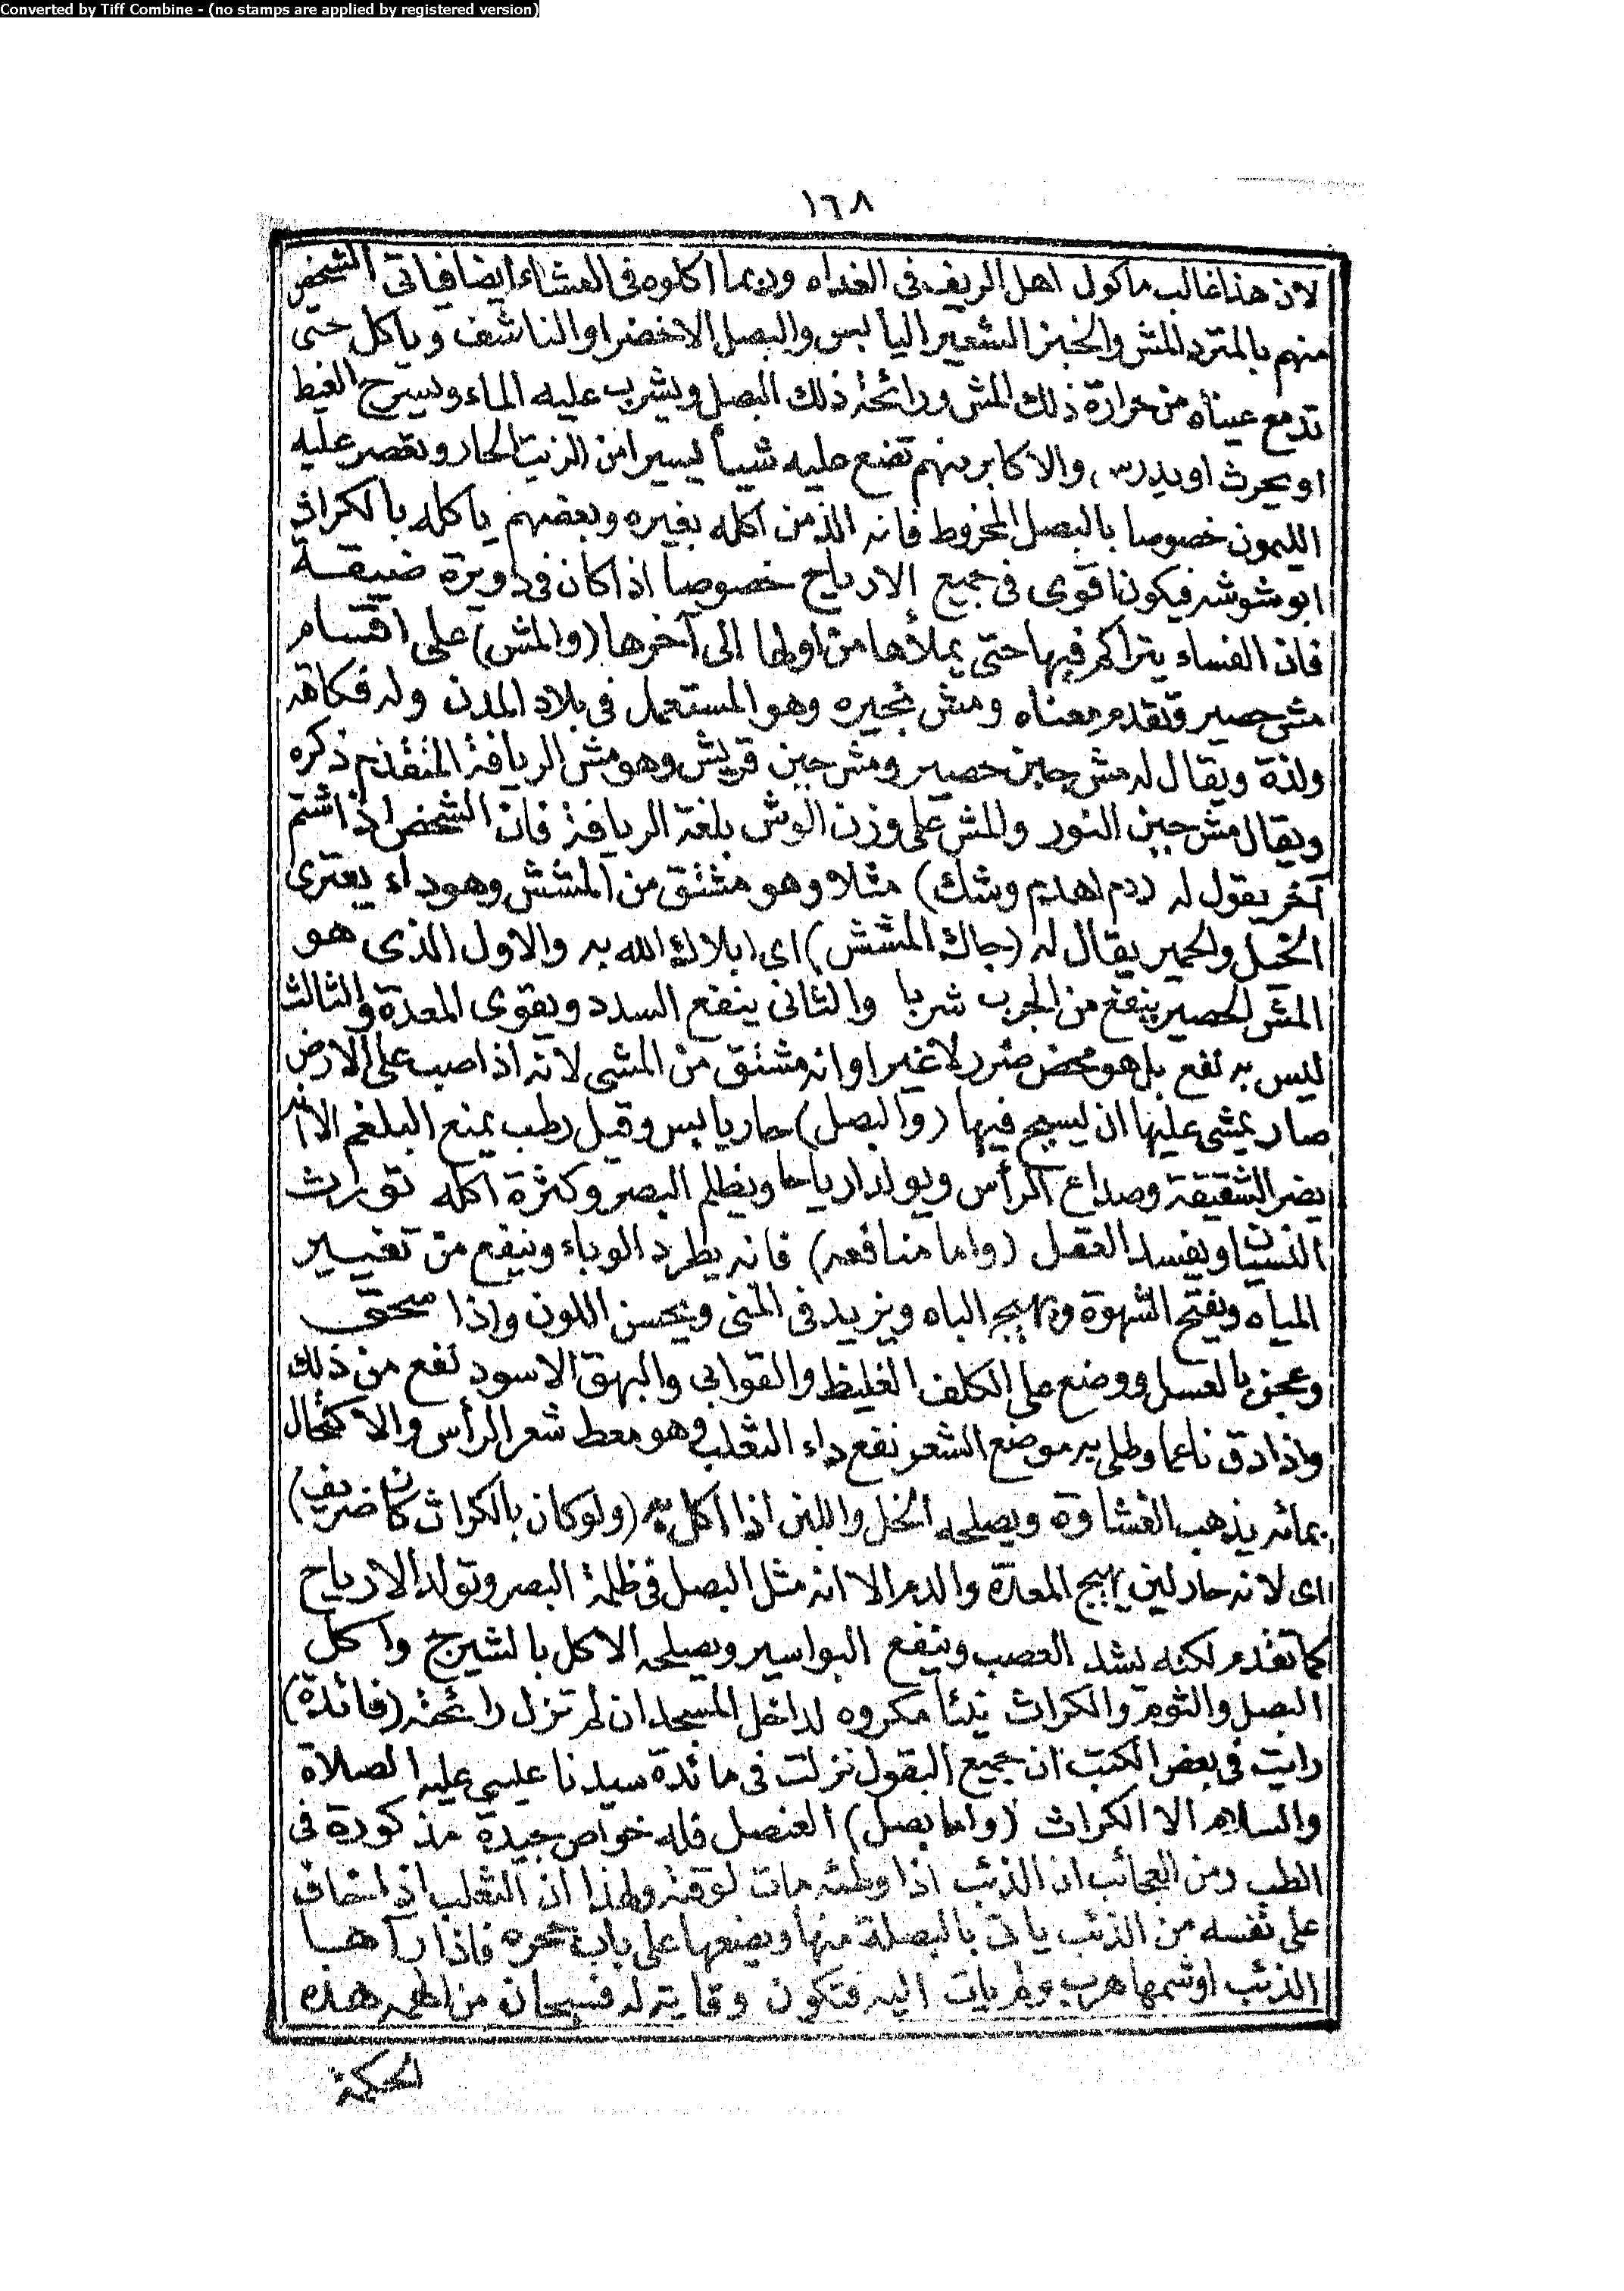 Converted by Tiff Combine - (no stamps are applied by registered version)
١٦٨
لان هذا غالب ماكول اهل الريف فى الغداه وربما اكلوه فى العشاء ايضا فياتى الشخص
منهم بالمترد المش والخبز الشعير اليابس والبصل الاخضر او الناشف وياكل حتى
تدمع عيناه من حرارة ذلك المش ورائحة ذلك البصل ويشرب عليه الماء ويسرح الغيط
او يحرث او يدرس والاكابر منهم تضع عليه شيأ يسيرا من الزيت الحار وتعصر عليه
الليمون خصوصا بالبصل المخروط فانه الذ من اكله بغيره وبعضهم ياكله بالكراث
ابو شوشه فيكون اقوى فى جميع الارياح خصوصا اذا كان فى دويرة ضيقة
فان الفساء يتراكم فيها حتى يملأها من اولها الى آخرها (والمش) على اقسام
مش حصير وتقدم معناه ومش نجيره وهو المستعمل فى بلاد المدن وله فكاهه
ولذة ويقال له مش جبن حصير ومش جبن قريش وهو مش الريافة المتقدم ذكره
ويقال مش جبن النور والمش على وزن الوش بلغة الريافة فان الشخص اذا شتم
آخر يقول له (دم اهدم وشك) مثلا وهو مشتق من المشش وهو داء يعترى
الخيل والحمير يقال له (جاك المشش) اى ابلاك الله به والاول الذى هو
المش الحصير ينفع من الجرب شربا والثانى ينفع السدد ويقوى المعدة والثالث
ليس به نفع بل هو محض ضرر لا غير او انه مشتق من المشى لانه اذا صب على الارض
صار يمشى عليها ان يسيح فيها (والبصل) حار يابس وقيل رطب يمنع البلغم الا انه
يضر الشقيقة وصداع الرأس ويولد ارياحا ويظلم البصر وكثرة اكله تورث
النسيان ويفسد العقل (واما منافعه) فانه يطرد الوباء وينفع من تغيير
المياه ويفتح الشهوة ويهيج الباه ويزيد فى المنى ويحسن اللون واذا سحق
وعجن بالعسل ووضع على الكلف الغليظ والقوابى والبهق الاسود نفع من ذلك
واذا دق ناعما وطلى به موضع الشعر نفع داء الثعلب وهو معط شعر الرأس والاكتحال
بمائه يذهب الغشاوة ويصلحه الخل واللبن اذا اكل به (ولو كان بالكراث كان ضريف)
اى لانه حار لين يهيج المعدة والدم الا انه مثل البصل فى ظلمة البصر وتولد الارياح
كما تقدم لكنه يشد العصب وينفع البواسير ويصلحه الاكل بالشيرج واكل
البصل والثوم والكراث نيئا مكروه لداخل المسجد ان لم تزل رائحته (فائدة)
رايت فى بعض الكتب ان جميع البقول نزلت فى مائدة سيدنا عيسى عليه الصلاة
والسلام الا الكراث (واما بصل) العنصل فله خواص جيدة مذكورة فى
الطب ومن العجائب ان الذئب اذا وطئه مات لوقته ولهذا ان الثعلب اذا خاف
على نفسه من الذئب ياتى بالبصلة منها ويضعها على باب جحره فاذا رآها
الذئب او شمها هرب ولم يات اليه فتكون وقاية له فسبحان من الهمه هذه
الحكمة